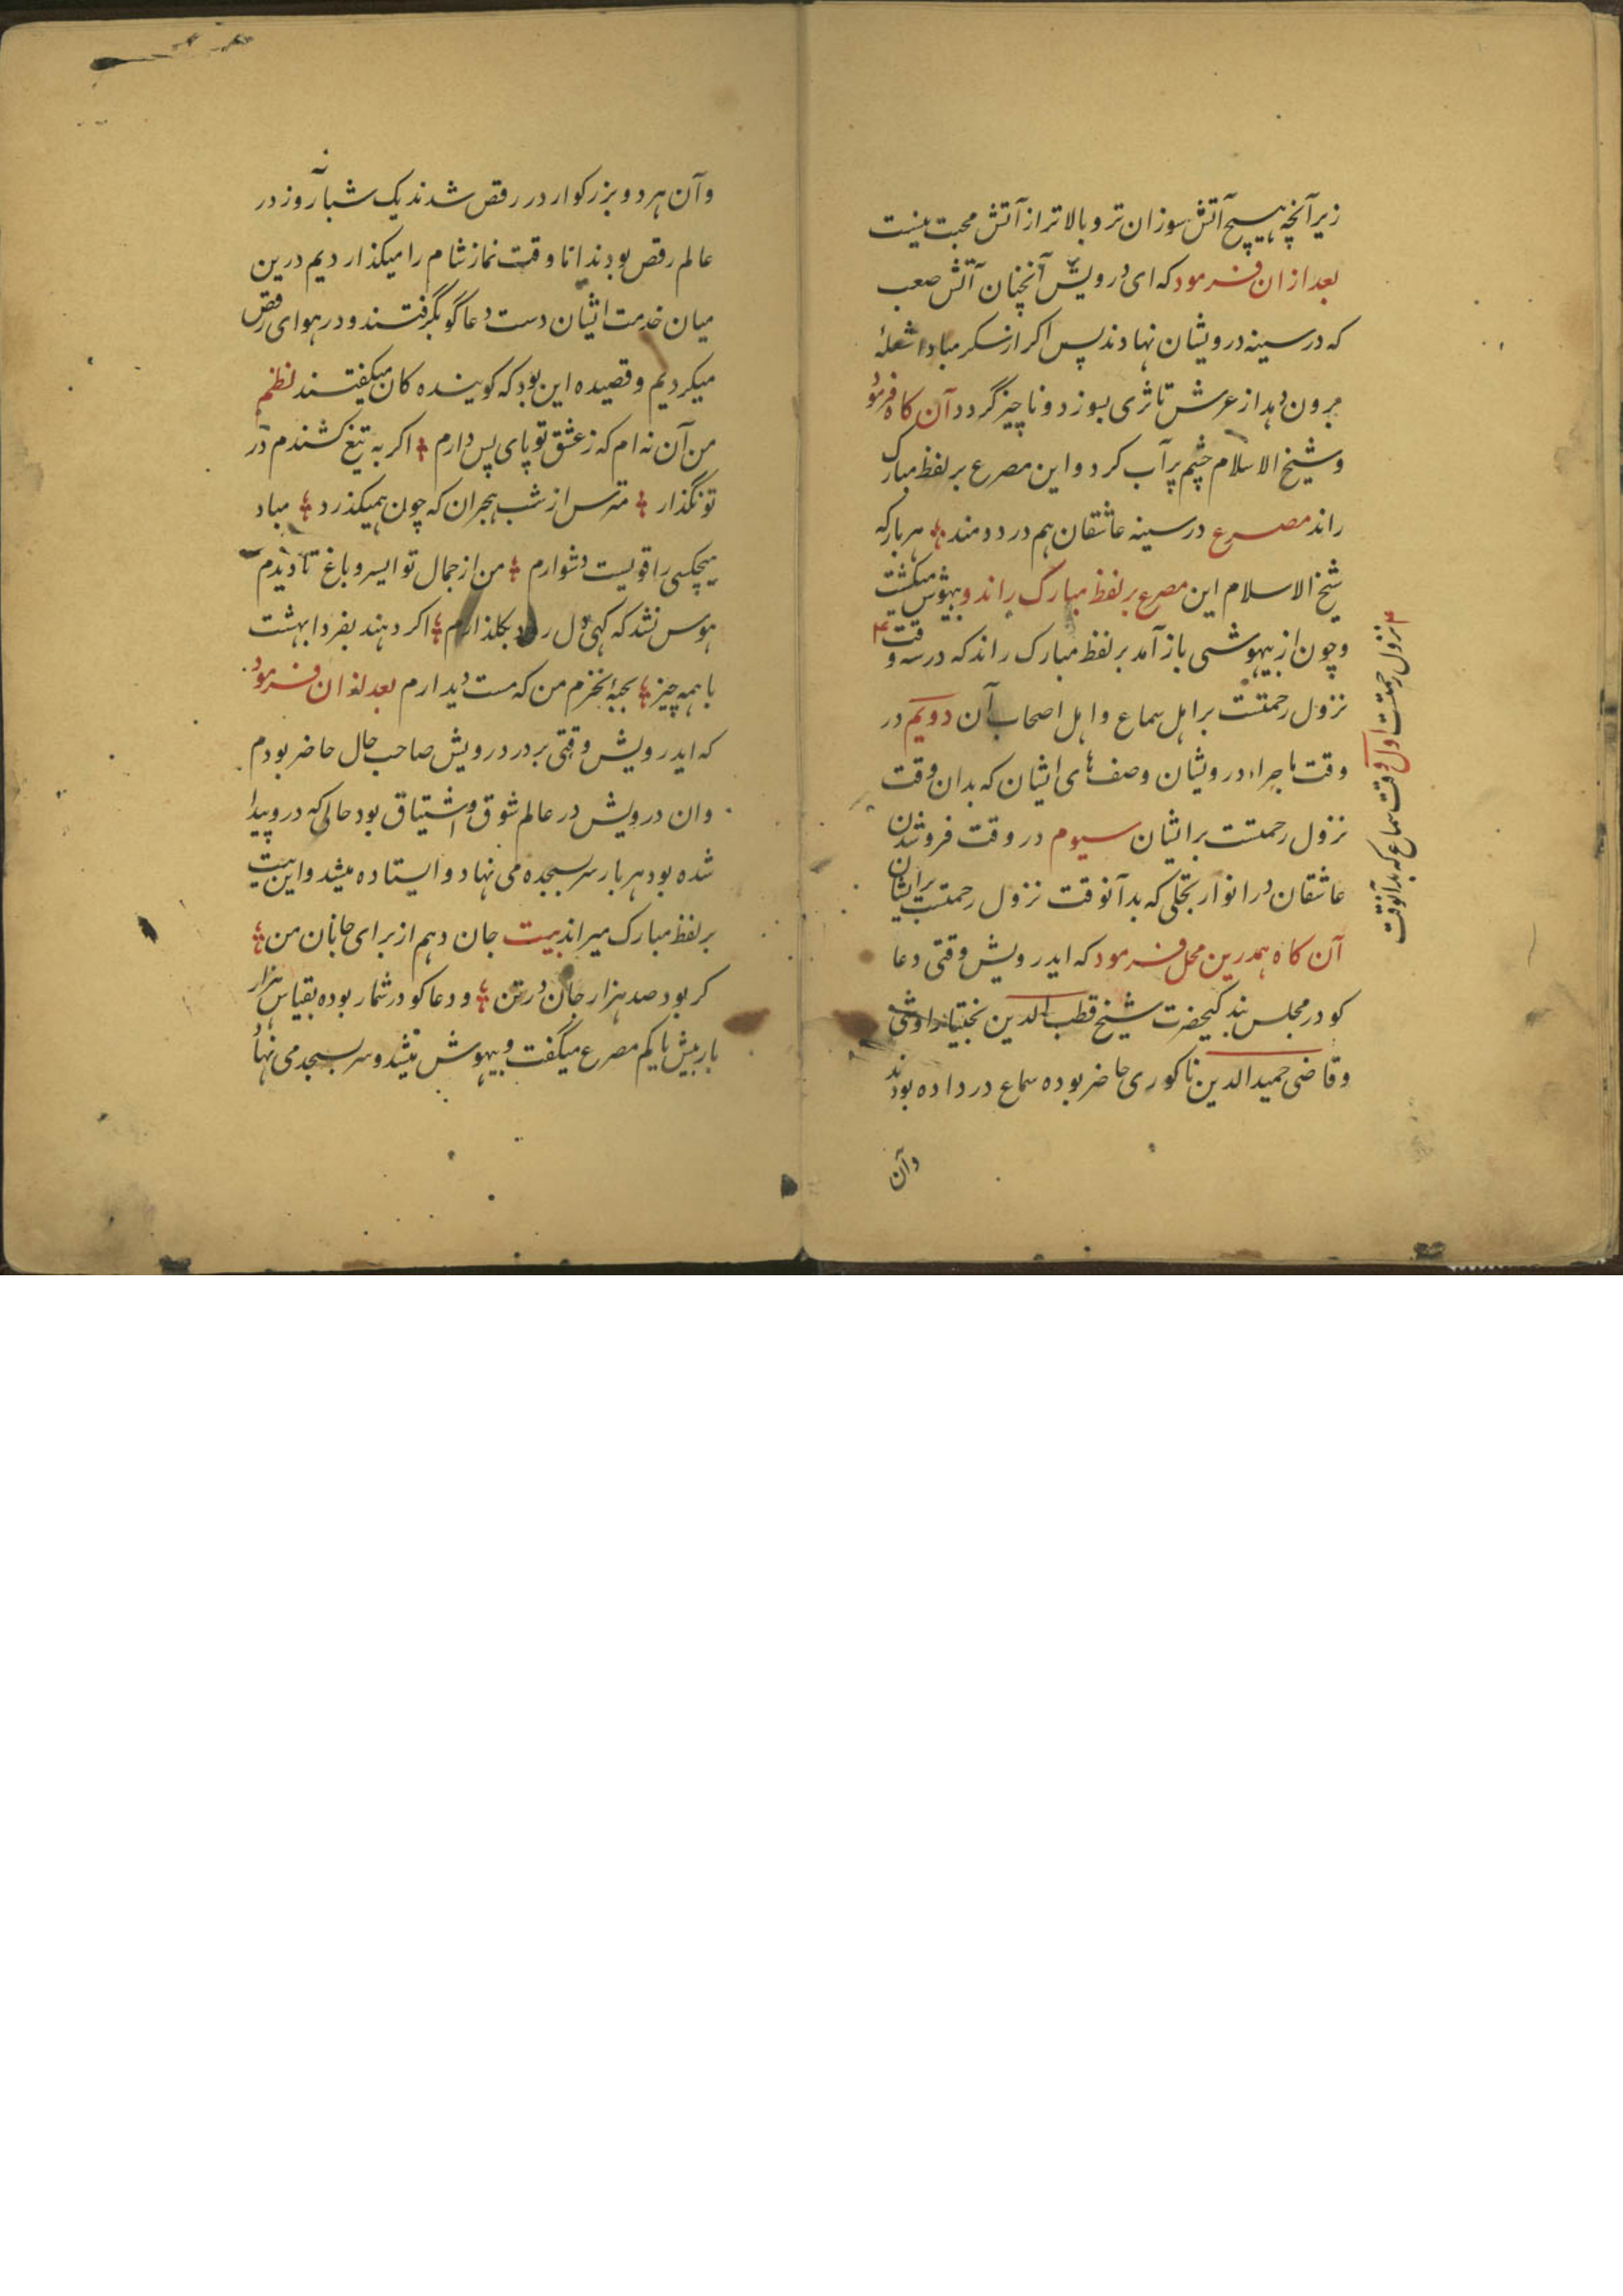 زیرآنچه هیچ آتش سوزان تر و بالاتر از آتش محبت نیست
بعد از ان فرمود که ای درویش آنچنان آتش صعب
که در سینه درویشان نهادند پس اکر از سکر مبادا شعلۀ
برون دهد از عرش تا ثری بسوزد و ناچیز گردد آن کاه فرمود
و شیخ الاسلام چشم پر آب کرد و این مصرع بر لفظ مبارک
راند مصرع در سینه عاشقان هم درد دومند هر بار که
شیخ الاسلام این مصرع بر لفظ مبارک راند و بیهوش میکشت
و چون از بیهوشی باز آمد بر لفظ مبارک راند که در سه وقت
نزول رحمتست بر اهل سماع و اهل اصحاب آن دویم در
وقت ماجراء درویشان وصف های ایشان که بدان وقت
نزول رحمتست بر ایشان سیوم در وقت فرو شدن
عاشقان در انوار تجلی که بدآنوقت نزول رحمتست بر ایشان
آن کاه همدرین محل فرمود که ایدرویش وقتی دعا
کو در مجلس بندکیحضرت شیخ قطب الدین بختیار اوشی
و قاضی حمید الدین ناکوری حاضر بوده سماع در داده بودند
وآن
نزول رحمتست اول وقت سماع که بدآنوقت
وآن هر دو بزرکوار در رقص شدند یک شبانه روز در
عالم رقص بودند اتا وقت نماز شام را میکذاردیم درین
میان خدمت ایشان دست دعا گو بگرفتند و در هوای رقص
میکردیم و قصیده این بود که کوینده کان میکفتند نظم
من آن نه ام که ز عشق تو پای پس دارم اکر به تیغ کشندم در
تو نگذار مترس از شب هجران که چون همیکذرد مباد
هیچکسی را قویست دشوارم من از جمال تو ایسرو باغ تا دیدم
هوس نشد که کهی دل رود بکلذارم اکر دهند بفردا بهشت
با همه چیز بحبۀ نخرم من که مست دیدارم بعد از ان فرمود
که ایدرویش وقتی بر در درویش صاحب حال حاضر بودم
وان درویش در عالم شوق و اشتیاق بود حالی که درو پیدا
شده بود هر بار سر بسجده می نهاد و ایستاده میشد و این بیت
بر لفظ مبارک میراند بیت جان دهم از برای جانان من
کر بود صد هزار جان در تن و دعا کو در شمار بوده بقیاس هزار
بار بیش یا کم مصرع میگفت و بیهوش میشد و سر بسجد می نهاد